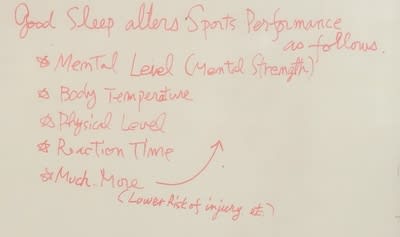 Good Sleep alters Sports Performance
as follows.
☆ Mental Level (Mental Strength)
☆ Body Temperature
☆ Physical Level
☆ Reaction Time
☆ Much More
(Lower Risk of injury et.)